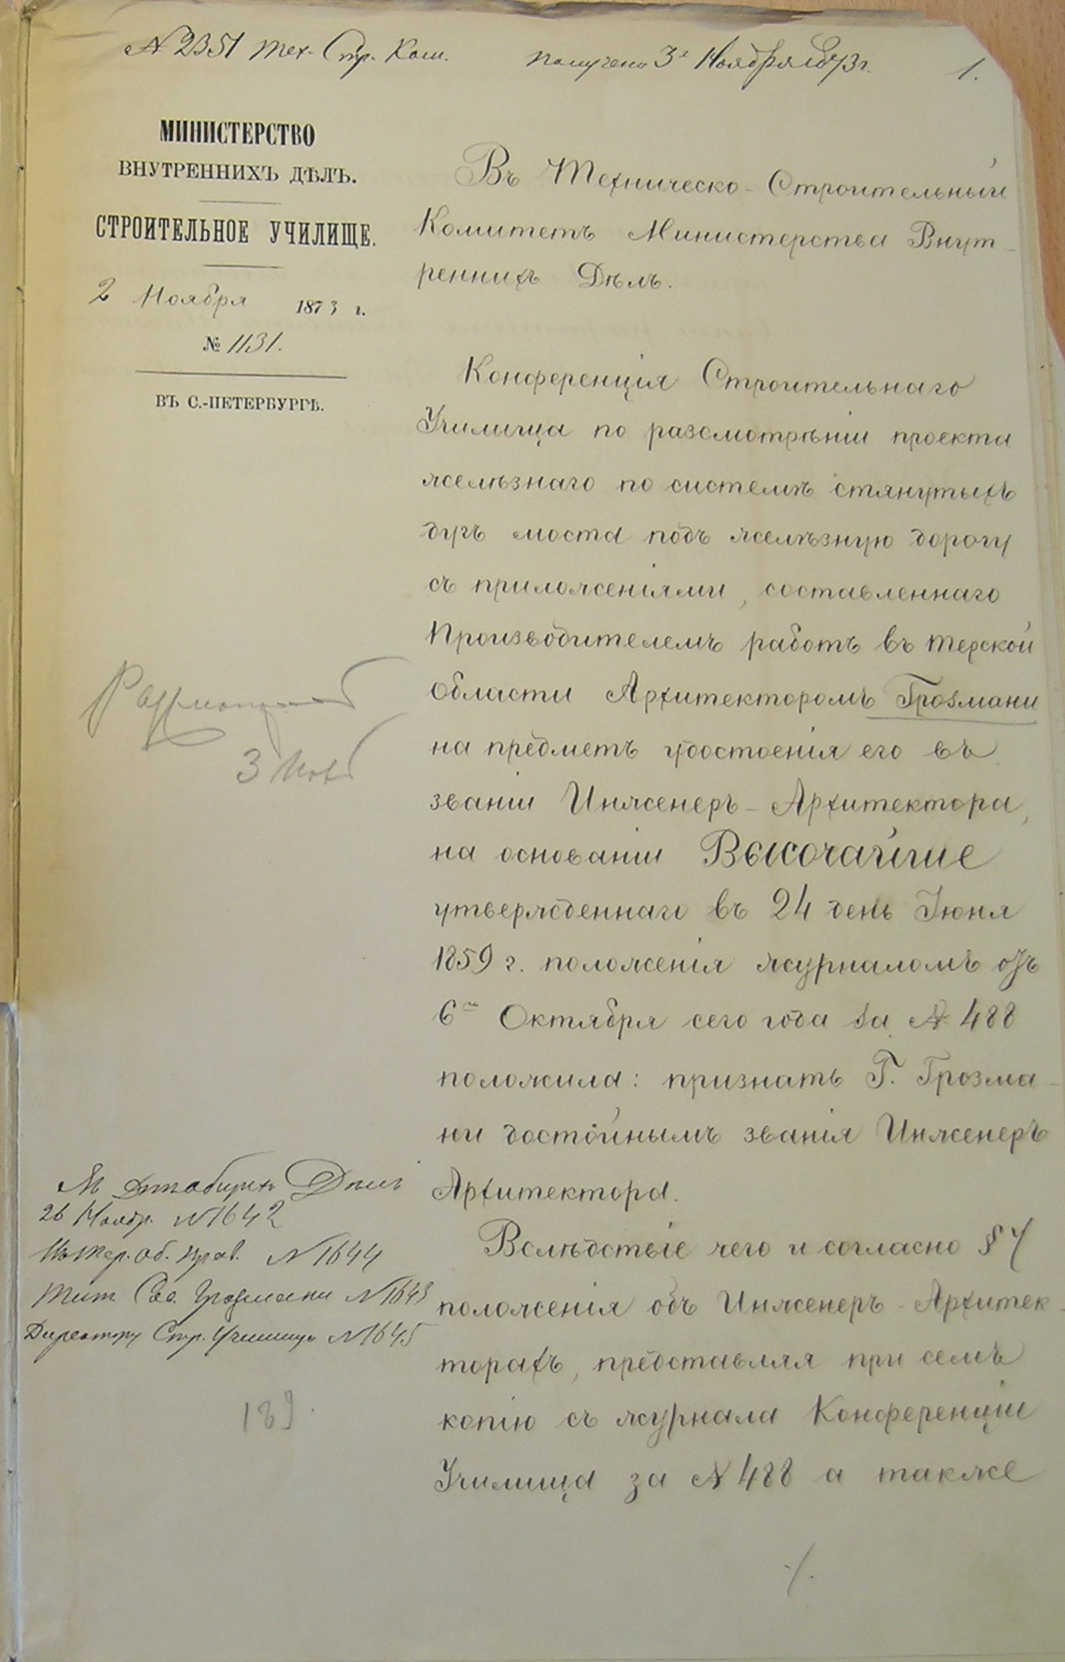 № 2351 Тех. Стр. Ком. Получено 3го Ноября 1873 г.
1.
МИНИСТЕРСТВО
ВНУТРЕННИХЪ ДѢЛЪ.
СТРОИТЕЛЬНОЕ УЧИЛИЩЕ.
2 Ноября 1873 г.
№ 1131.
ВЪ С.-ПЕТЕРБУРГѢ.
Въ Техническо-Строительный
Комитетъ Министерства Внут-
реннихъ Дѣлъ.
Конференція Строительнаго
Училища по разсмотрѣніи проекта
желѣзнаго по системѣ стянутыхъ
дугъ моста подъ желѣзную дорогу
съ приложеніями, составленнаго
Производителемъ работъ въ Терской
Области Архитекторомъ Грозмани
на предметъ удостоенія его въ
званіи Инженеръ-Архитектора,
на основаніи Высочайше
утвержденнаго въ 24 день Іюня
1859 г. положенія журналомъ отъ
6го Октября сего года за № 488
положила: признать Г. Грозма-
ни достойнымъ званія Инженеръ
Архитектора.
Вслѣдствіе чего и согласно § 7
положенія объ Инженеръ-Архитек-
торахъ, представляя при семъ
копію съ журнала Конференціи
Училища за № 488 а также
3 Нояб
26 Ноябр. № 1642
Нач. Тер. об. прав. № 1644
Тит. Сов. Грозмани № 1643
Директору Стр. Училища № 1645
189.
./.